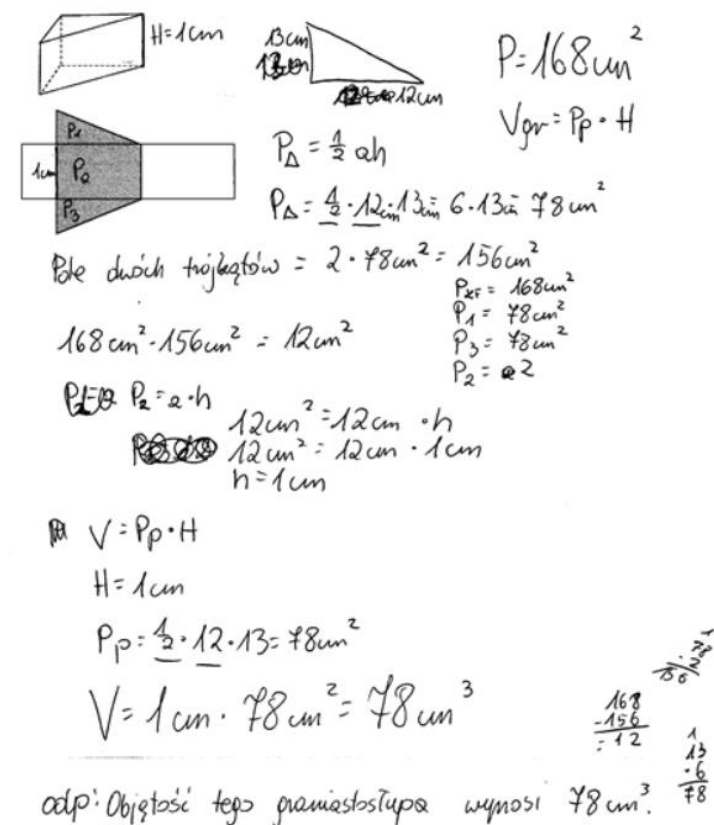 H=1cm
13cm
12cm
P=168cm²
Vgr=Pp·H
P1
1cm P2
P3
P△ = 1/2 ah
P△ = 1/2 · 12cm · 13cm = 6 · 13cm = 78cm²
Pole dwóch trójkątów = 2 · 78cm² = 156cm²
168cm² - 156cm² = 12cm²
= 168cm²
P1 = 78cm²
P3 = 78cm²
P2 = 2
P2 = a·h
12cm² = 12cm · h
12cm² = 12cm · 1cm
h = 1cm
V = Pp·H
H = 1cm
Pp = 1/2 · 12 · 13 = 78cm²
V = 1cm · 78cm² = 78cm³
1
78
·2
156
168
-156
=12
1
13
·6
78
odp: Objętość tego graniastosłupa wynosi 78cm³.